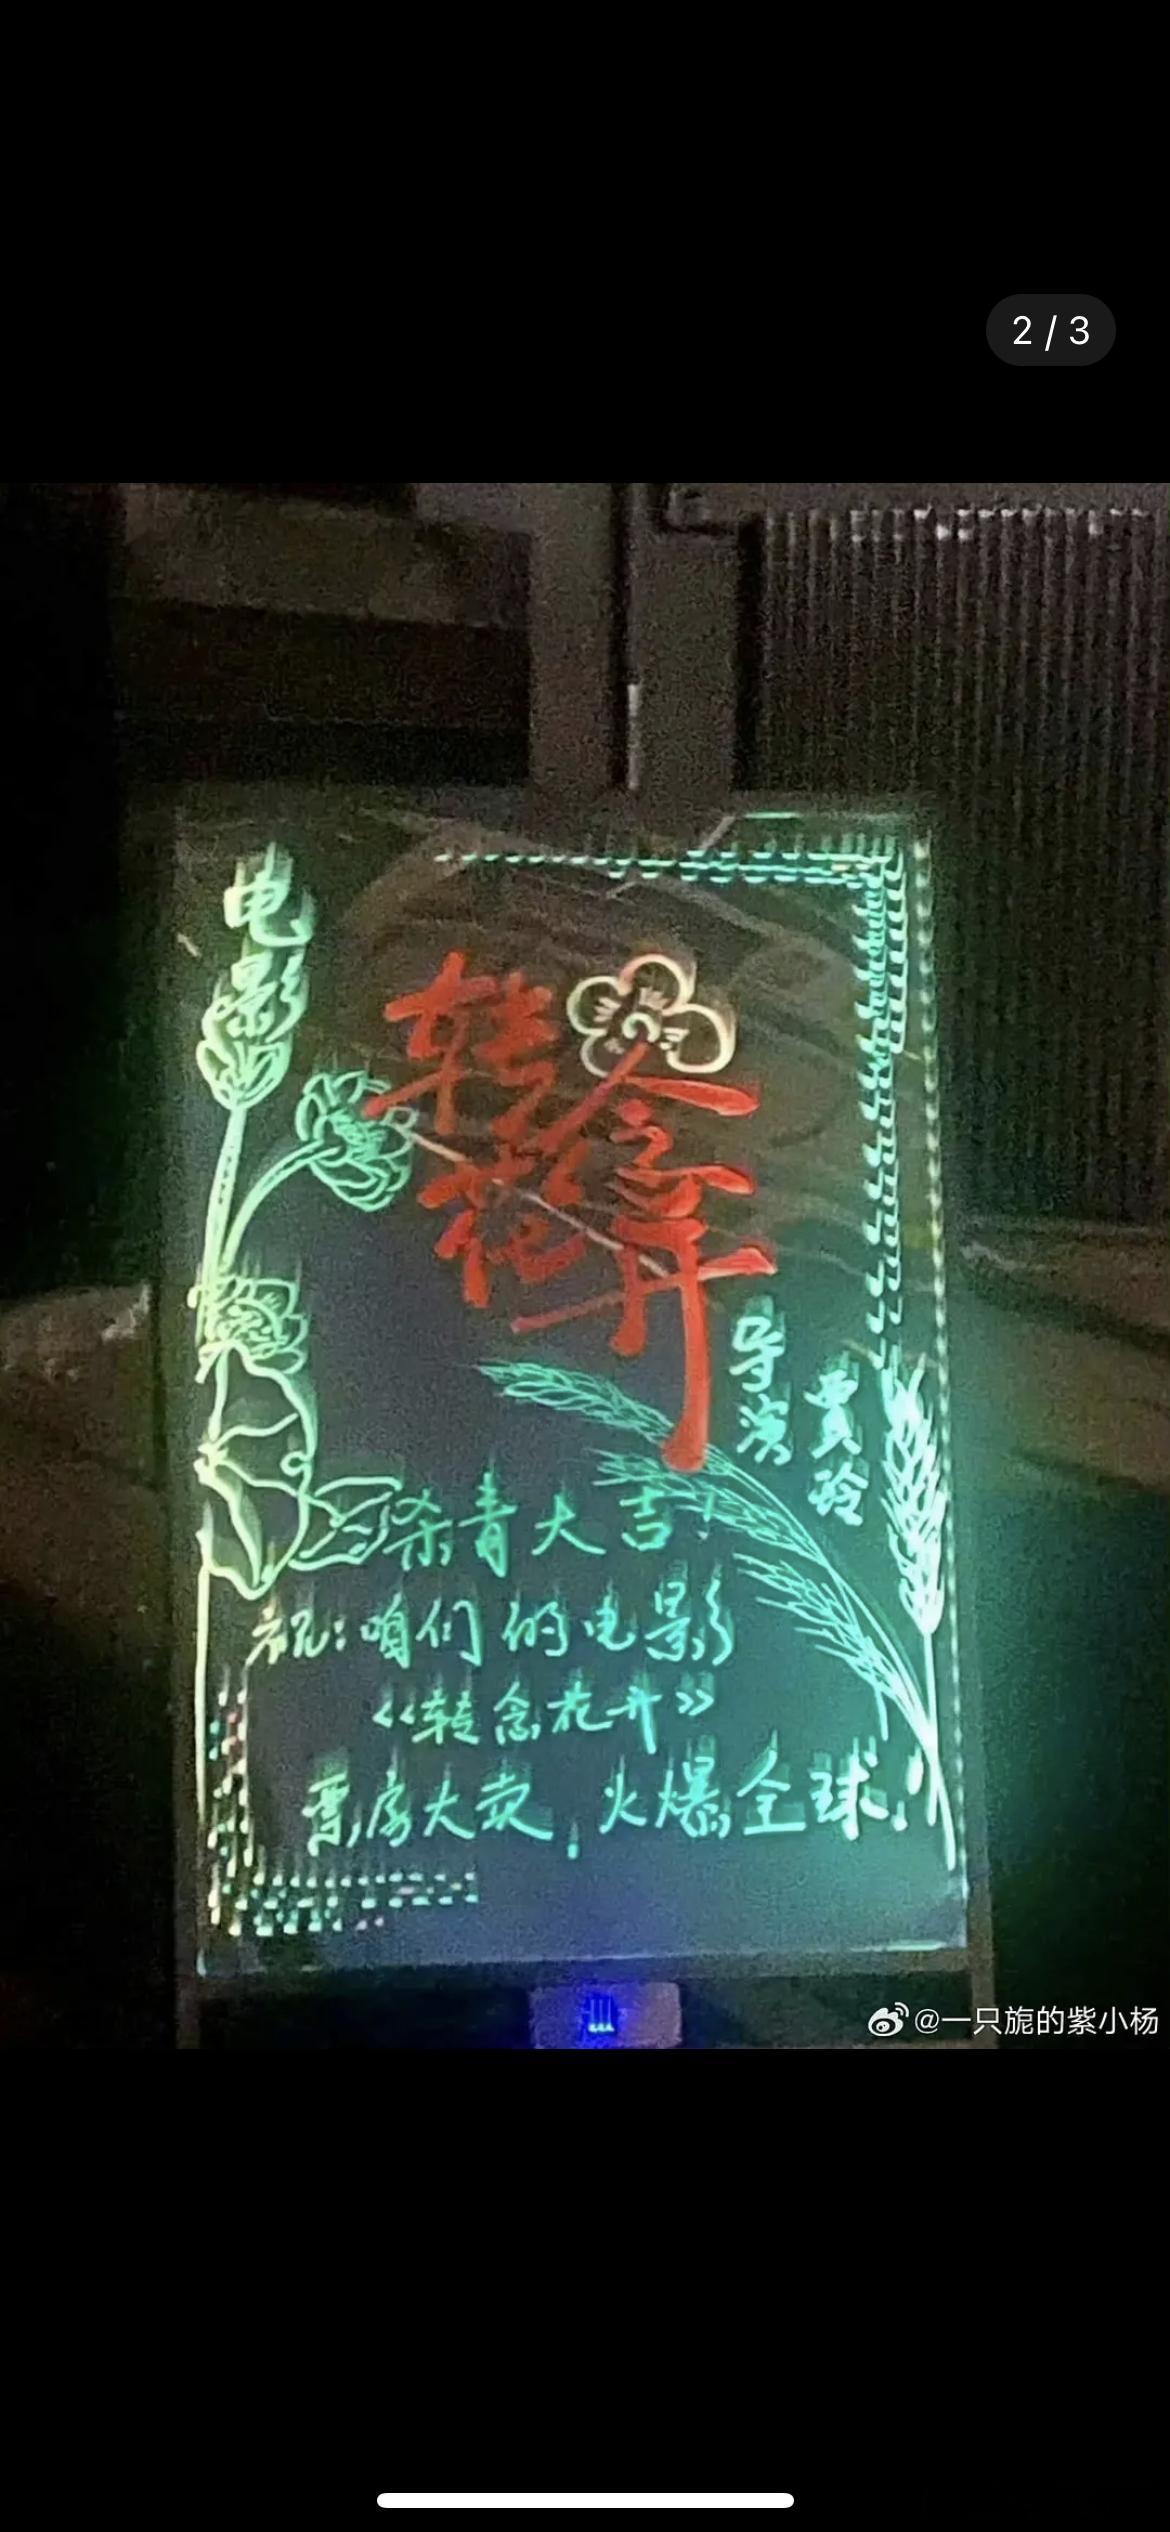 2 / 3
电影
转念花开
导演
贾玲
杀青大吉!
祝:咱们的电影
《转念花开》
票房大卖,火爆全球!
@一只旎的紫小杨